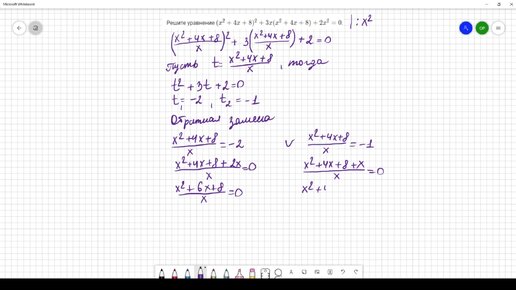 Microsoft Whiteboard
Решите уравнение (x² + 4x + 8)² + 3x(x² + 4x + 8) + 2x² = 0. | : x²
((x²+4x+8)/x)² + 3((x²+4x+8)/x) + 2 = 0
Пусть t = (x²+4x+8)/x , тогда
t² + 3t + 2 = 0
t₁ = -2 , t₂ = -1
Обратная замена
(x²+4x+8)/x = -2 ∨ (x²+4x+8)/x = -1
(x²+4x+8+2x)/x = 0 (x²+4x+8+x)/x = 0
(x²+6x+8)/x = 0 x²+